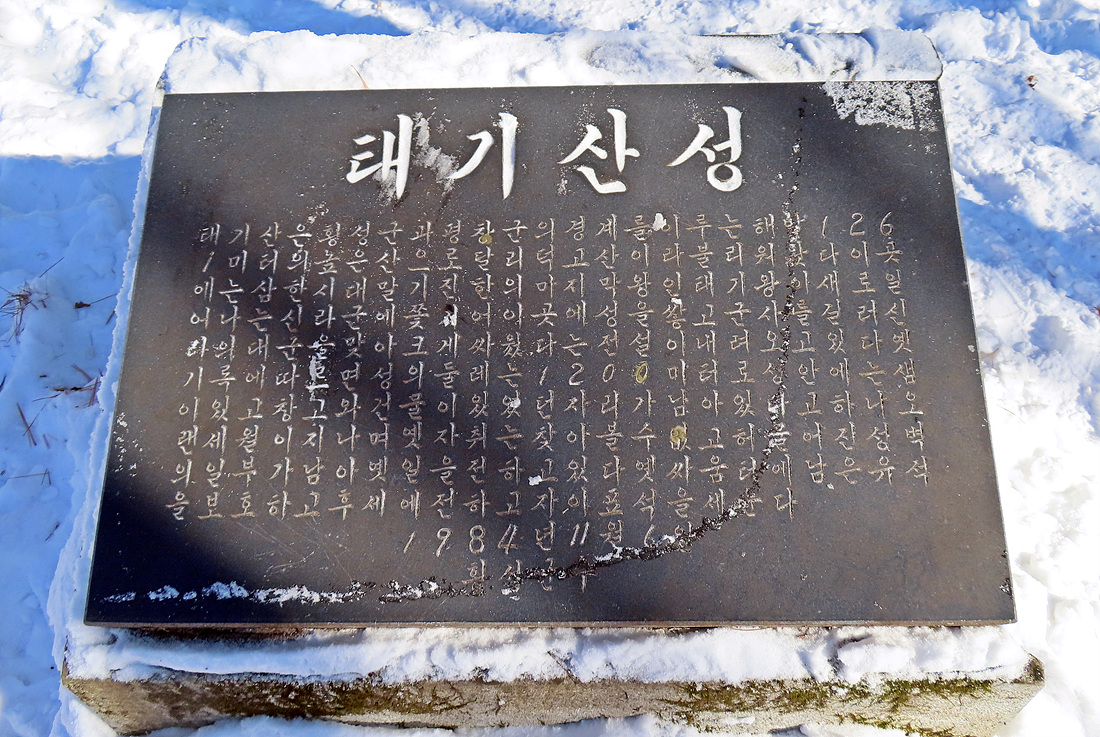 태기산성
태기산은 횡성군과 평창군의 경계를 이루는 해발 126
1미터의 높은 산으로 달리 덕고산이라 불리워 왔다 이곳
에는 삼한시대 말기 진한의 마지막 왕인 태기왕이 새로 일
어나는 신라군에게 쫓기어 이곳에 성을 쌓고 군사를 길러 신
라의 대군을 맞아 크게 싸웠다는 전설이 내려오고 있다 옛
기록에 따르면 성의 둘레는 1260미터로 성안에는 샘
이 있고 창고와 건물이 있었던 자리가 남아 하나 오
랜 세월이 지나며 옛 자취는 찾아볼 수 없고 허물어진 성벽
의 일부가 남아 옛일을 전하고 있다 옛 싸움터에 남은 유석
을 보호하고 후세에 전하고자 이 표석을 세운다
1984년 11월 6일
횡성군수